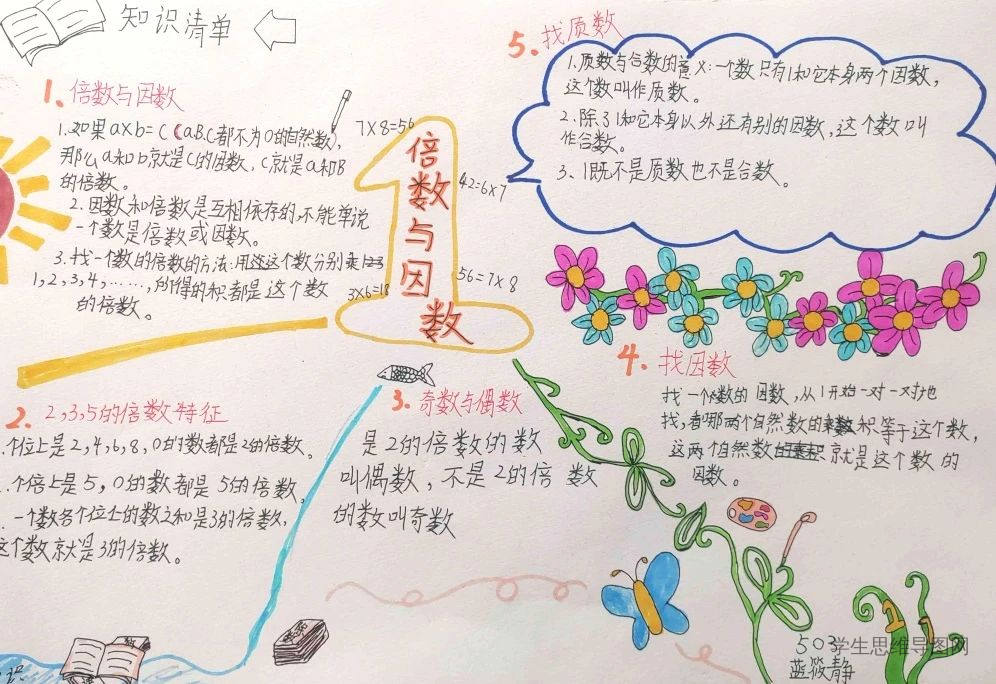 知识清单
1、倍数与因数
1.如果a×b=C(aBC都不为0的自然数),
那么a和b就是C的因数,C就是a和B
的倍数。
2.因数和倍数是互相依存的,不能单说
一个数是倍数或因数。
3.找一个数的倍数的方法:用这个数分别乘
1,2,3,4,……,所得的积都是这个数
的倍数。
倍数与因数
7×8=56
42=6×7
56=7×8
3×6=18
2. 2,3,5的倍数特征
个位上是2,4,6,8,0的数都是2的倍数。
个倍上是5,0的数都是5的倍数,
一个数各个位上的数之和是3的倍数,
这个数就是3的倍数。
3. 奇数与偶数
是2的倍数的数
叫偶数,不是2的倍数
的数叫奇数
4. 找因数
找一个数的因数,从1开始一对一对地
找,看哪两个自然数的乘积等于这个数,
这两个自然数就是这个数的
因数。
5. 找质数
1.质数与合数的意义:一个数只有1和它本身两个因数,
这个数叫作质数。
2.除了1和它本身以外还有别的因数,这个数叫
作合数。
3、1既不是质数也不是合数。
503
蓝筱静
学生思维导图网
识